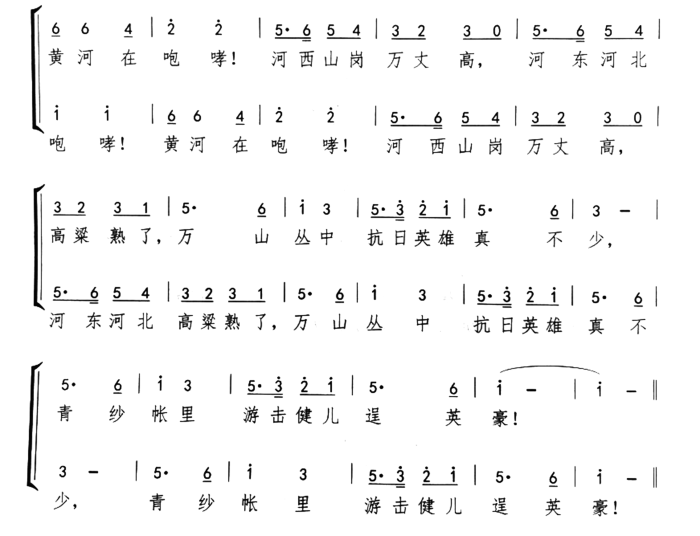 6 6 4 | 2 2 | 5· 6 5 4 | 3 2 3 0 | 5· 6 5 4 |
黄河在咆哮！河西山岗万丈高，河东河北
i i | 6 6 4 | 2 2 | 5· 6 5 4 | 3 2 3 0 |
咆哮！黄河在咆哮！河西山岗万丈高，
3 2 3 1 | 5· 6 | i 3 | 5· 3 2 i | 5· 6 | 3 — |
高粱熟了，万山丛中抗日英雄真不少，
5· 6 5 4 | 3 2 3 1 | 5· 6 | i 3 | 5· 3 2 i | 5· 6 |
河东河北高粱熟了，万山丛中抗日英雄真不
5· 6 | i 3 | 5· 3 2 i | 5· 6 | i — | i — ‖
青纱帐里游击健儿逞英豪！
3 — | 5· 6 | i 3 | 5· 3 2 i | 5· 6 | i — ‖
少，青纱帐里游击健儿逞英豪！